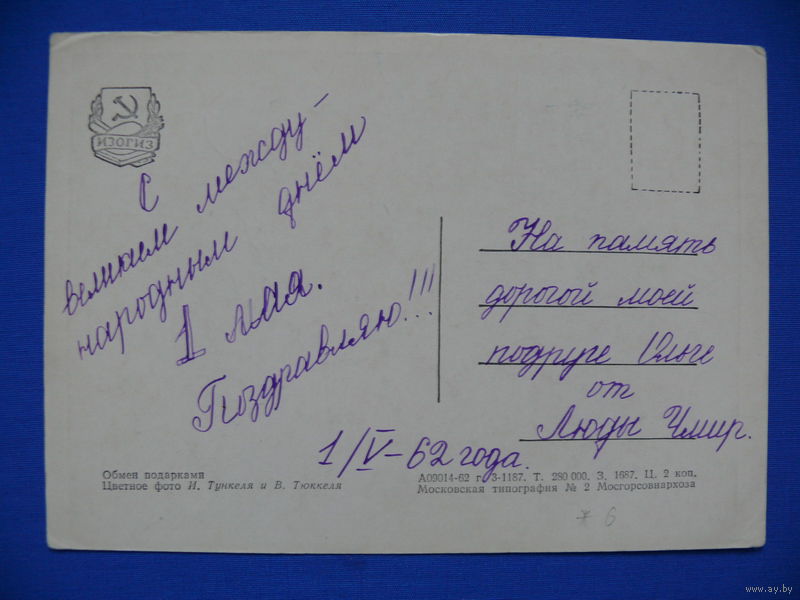 ИЗОГИЗ
С
великим между-
народным днём
1 мая.
Поздравляю!!!
1/V-62 года.
На память
дорогой моей
подруге Ольге
от
Люды Чмир.
Обмен подарками
Цветное фото И. Тункеля и В. Тюккеля
А09014-62 г. З-1187. Т. 280 000. З. 1687. Ц. 2 коп.
Московская типография № 2 Мосгорсовнархоза
* 6
www.ay.by